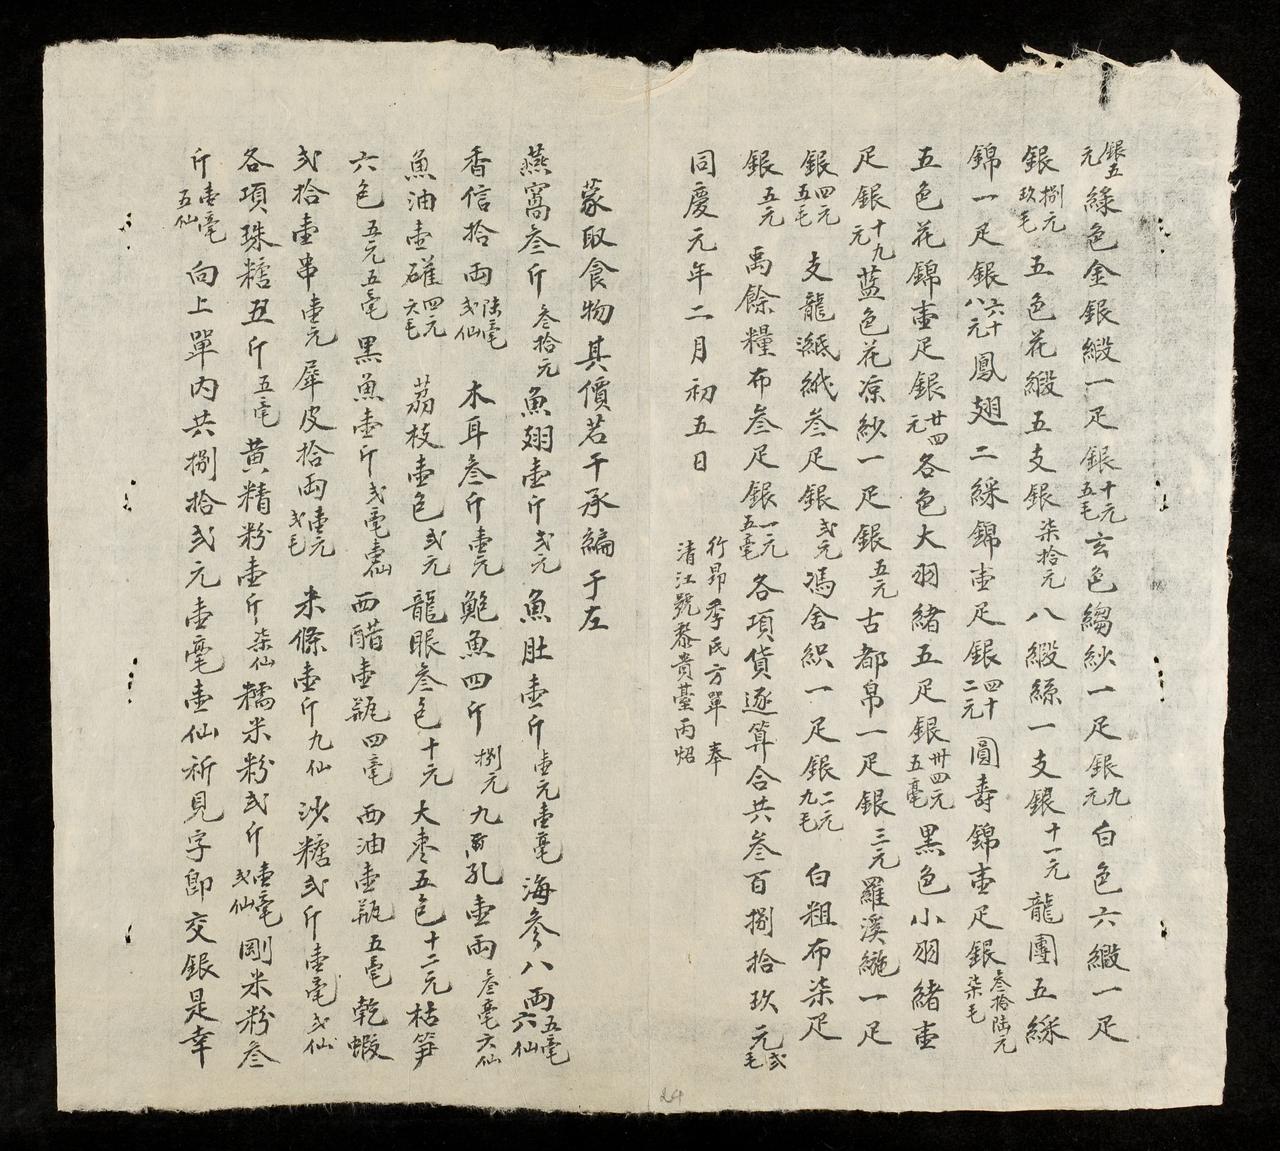 銀五元綠色金銀緞一疋銀十元五毛玄色縐紗一疋銀九元白色六緞一疋
銀捌元玖毛五色花緞五支銀柒拾元八緞絲一支銀十一元龍團五綵
錦一疋銀六十八元鳳翅二綵錦壹疋銀四十二元圓壽錦壹疋銀叁拾陆元柒毛
五色花錦壹疋銀廿四元各色大羽緒五疋銀卅四元五毫黑色小羽緒壹
疋銀十九元藍色花凉紗一疋銀五元古都帛一疋銀三元羅溪絁一疋
銀四元五毛支龍絨叁疋銀弍元馮舍織一疋銀二元九毛白粗布柒疋
銀五元禹餘糧布叁疋銀一元五毫各項貨逐算合共叁百捌拾玖元弍毛
同慶元年二月初五日
行昻季氏方單奉
清江號黎貴臺丙炤
蒙取食物其價若干承編于左
燕窩叁斤叁拾元魚翅壹斤弍元魚肚壹斤壹元壹毫海參八両五毫六仙
香信拾両陆毫弍仙木耳叁斤壹元鮑魚四斤捌元九孔壹両叁毫六仙
魚油壹確四元六毛荔枝壹色弍元龍眼叁色十元大枣五色十二元枯笋
六色五元五毫黑魚壹斤弍毫壹仙西醋壹瓶四毫西油壹瓶五毫乾蝦
弍拾壹串壹元犀皮拾両壹元弍毛米條壹斤九仙沙糖弍斤壹毫弍仙
各項珠糖五斤五毫黄精粉壹斤柒仙糯米粉弍斤壹毫弍仙剛米粉叁
斤壹毫五仙向上單内共捌拾弍元壹毫壹仙祈見字即交銀是幸
24